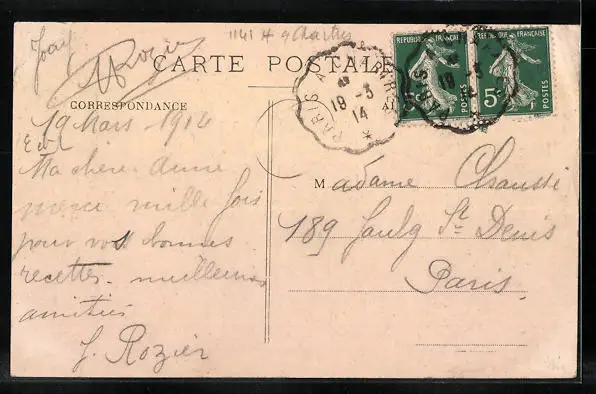 Rozier
1141 H 9 Chartres
CARTE POSTALE
CORRESPONDANCE
19 Mars 1914
Ma chère amie
merci mille fois
pour vos bonnes
recettes. meilleures
amitiés
J. Rozier
PARIS A
18 - 3
14
REPUBLIQUE FRANÇAISE
POSTES
REPUBLIQUE FRANÇAISE
5c
POSTES
PARIS
18 - 3
Madame Chaussé
189 Faubg St Denis
Paris.